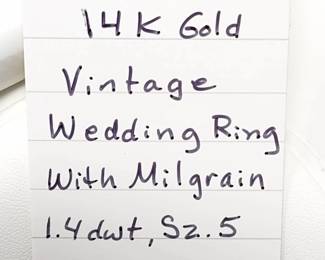 14K Gold
Vintage
Wedding Ring
With Milgrain
1.4 dwt, Sz. 5